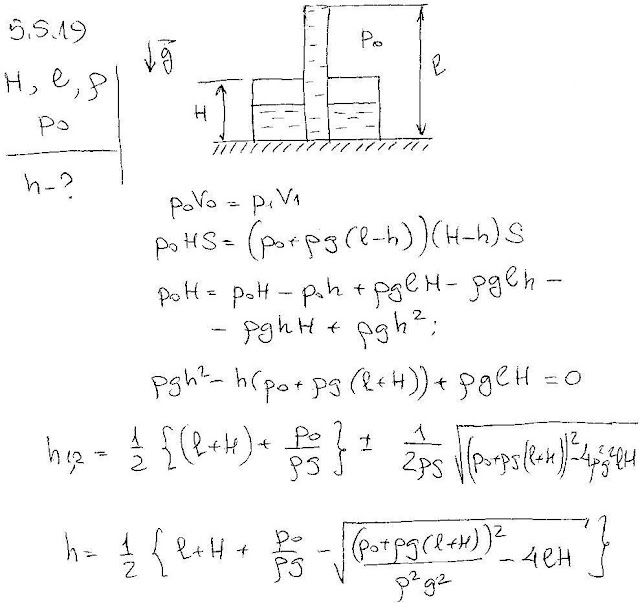 5.5.19
H, l, ρ
p₀
h-?
↓g⃗
H
p₀
l
p₀V₀ = p₁V₁
p₀HS = (p₀+ρg(l-h))(H-h)S
p₀H = p₀H - p₀h + ρglH - ρglh -
- ρghH + ρgh²;
ρgh² - h(p₀ + ρg(l+H)) + ρglH = 0
h₁,₂ = 1/2 {(l+H) + p₀/ρg} ± 1/2ρg √((p₀+ρg(l+H))² - 4ρ²g²lH)
h = 1/2 { l+H + p₀/ρg - √((p₀+ρg(l+H))²/ρ²g² - 4lH) }